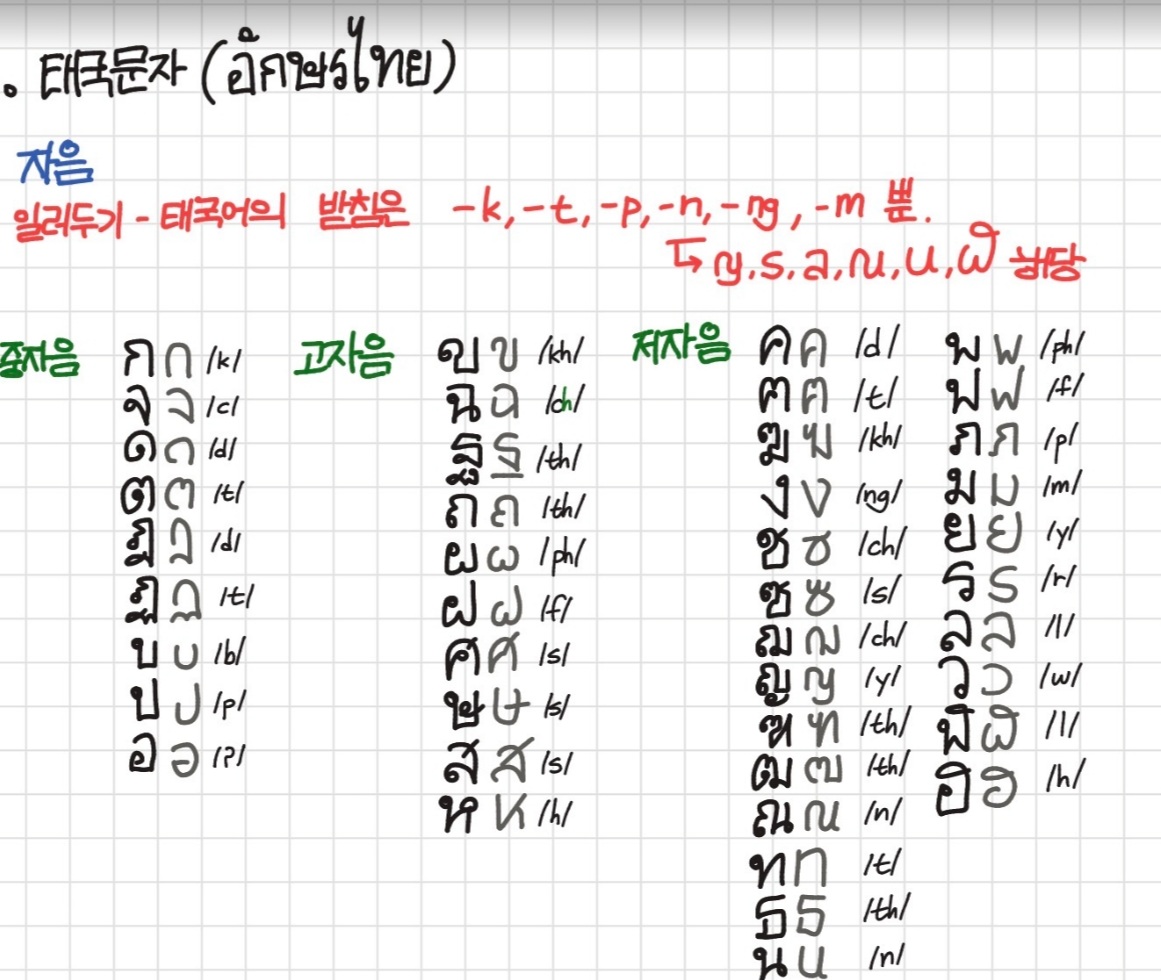 ∘ 태국문자 (อักษรไทย)
자음
일러두기 - 태국어의 받침은 -k, -t, -p, -n, -ng, -m 뿐.
↳ ญ, ร, ล, ณ, น, ฬ 해당
중자음 ก ก /k/
จ จ /c/
ด ด /d/
ต ต /t/
ฎ ฎ /d/
ฏ ฏ /t/
บ บ /b/
ป ป /p/
อ อ /ʔ/
고자음 ข ข /kh/
ฉ ฉ /ch/
ฐ ฐ /th/
ถ ถ /th/
ผ ผ /ph/
ฝ ฝ /f/
ศ ศ /s/
ษ ษ /s/
ส ส /s/
ห ห /h/
저자음 ค ค /d/
ฅ ฅ /t/
ฆ ฆ /kh/
ง ง /ng/
ช ช /ch/
ซ ซ /s/
ฌ ฌ /ch/
ญ ญ /y/
ฑ ฑ /th/
ฒ ฒ /th/
ณ ณ /n/
ท ท /t/
ธ ธ /th/
น น /n/
พ พ /ph/
ฟ ฟ /f/
ภ ภ /p/
ม ม /m/
ย ย /y/
ร ร /r/
ล ล /l/
ว ว /w/
ฬ ฬ /l/
ฮ ฮ /h/